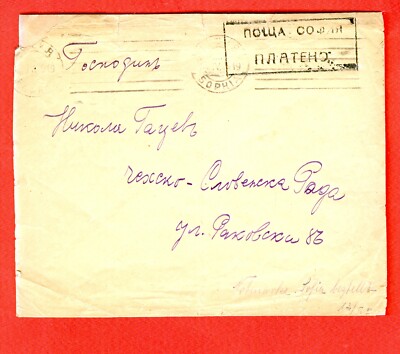 ПОЩА СОФИЯ
ПЛАТЕНО
Господинъ
Никола Гацевъ
Чехско-Словенска Рада
ул. Раковски 86
Sofia